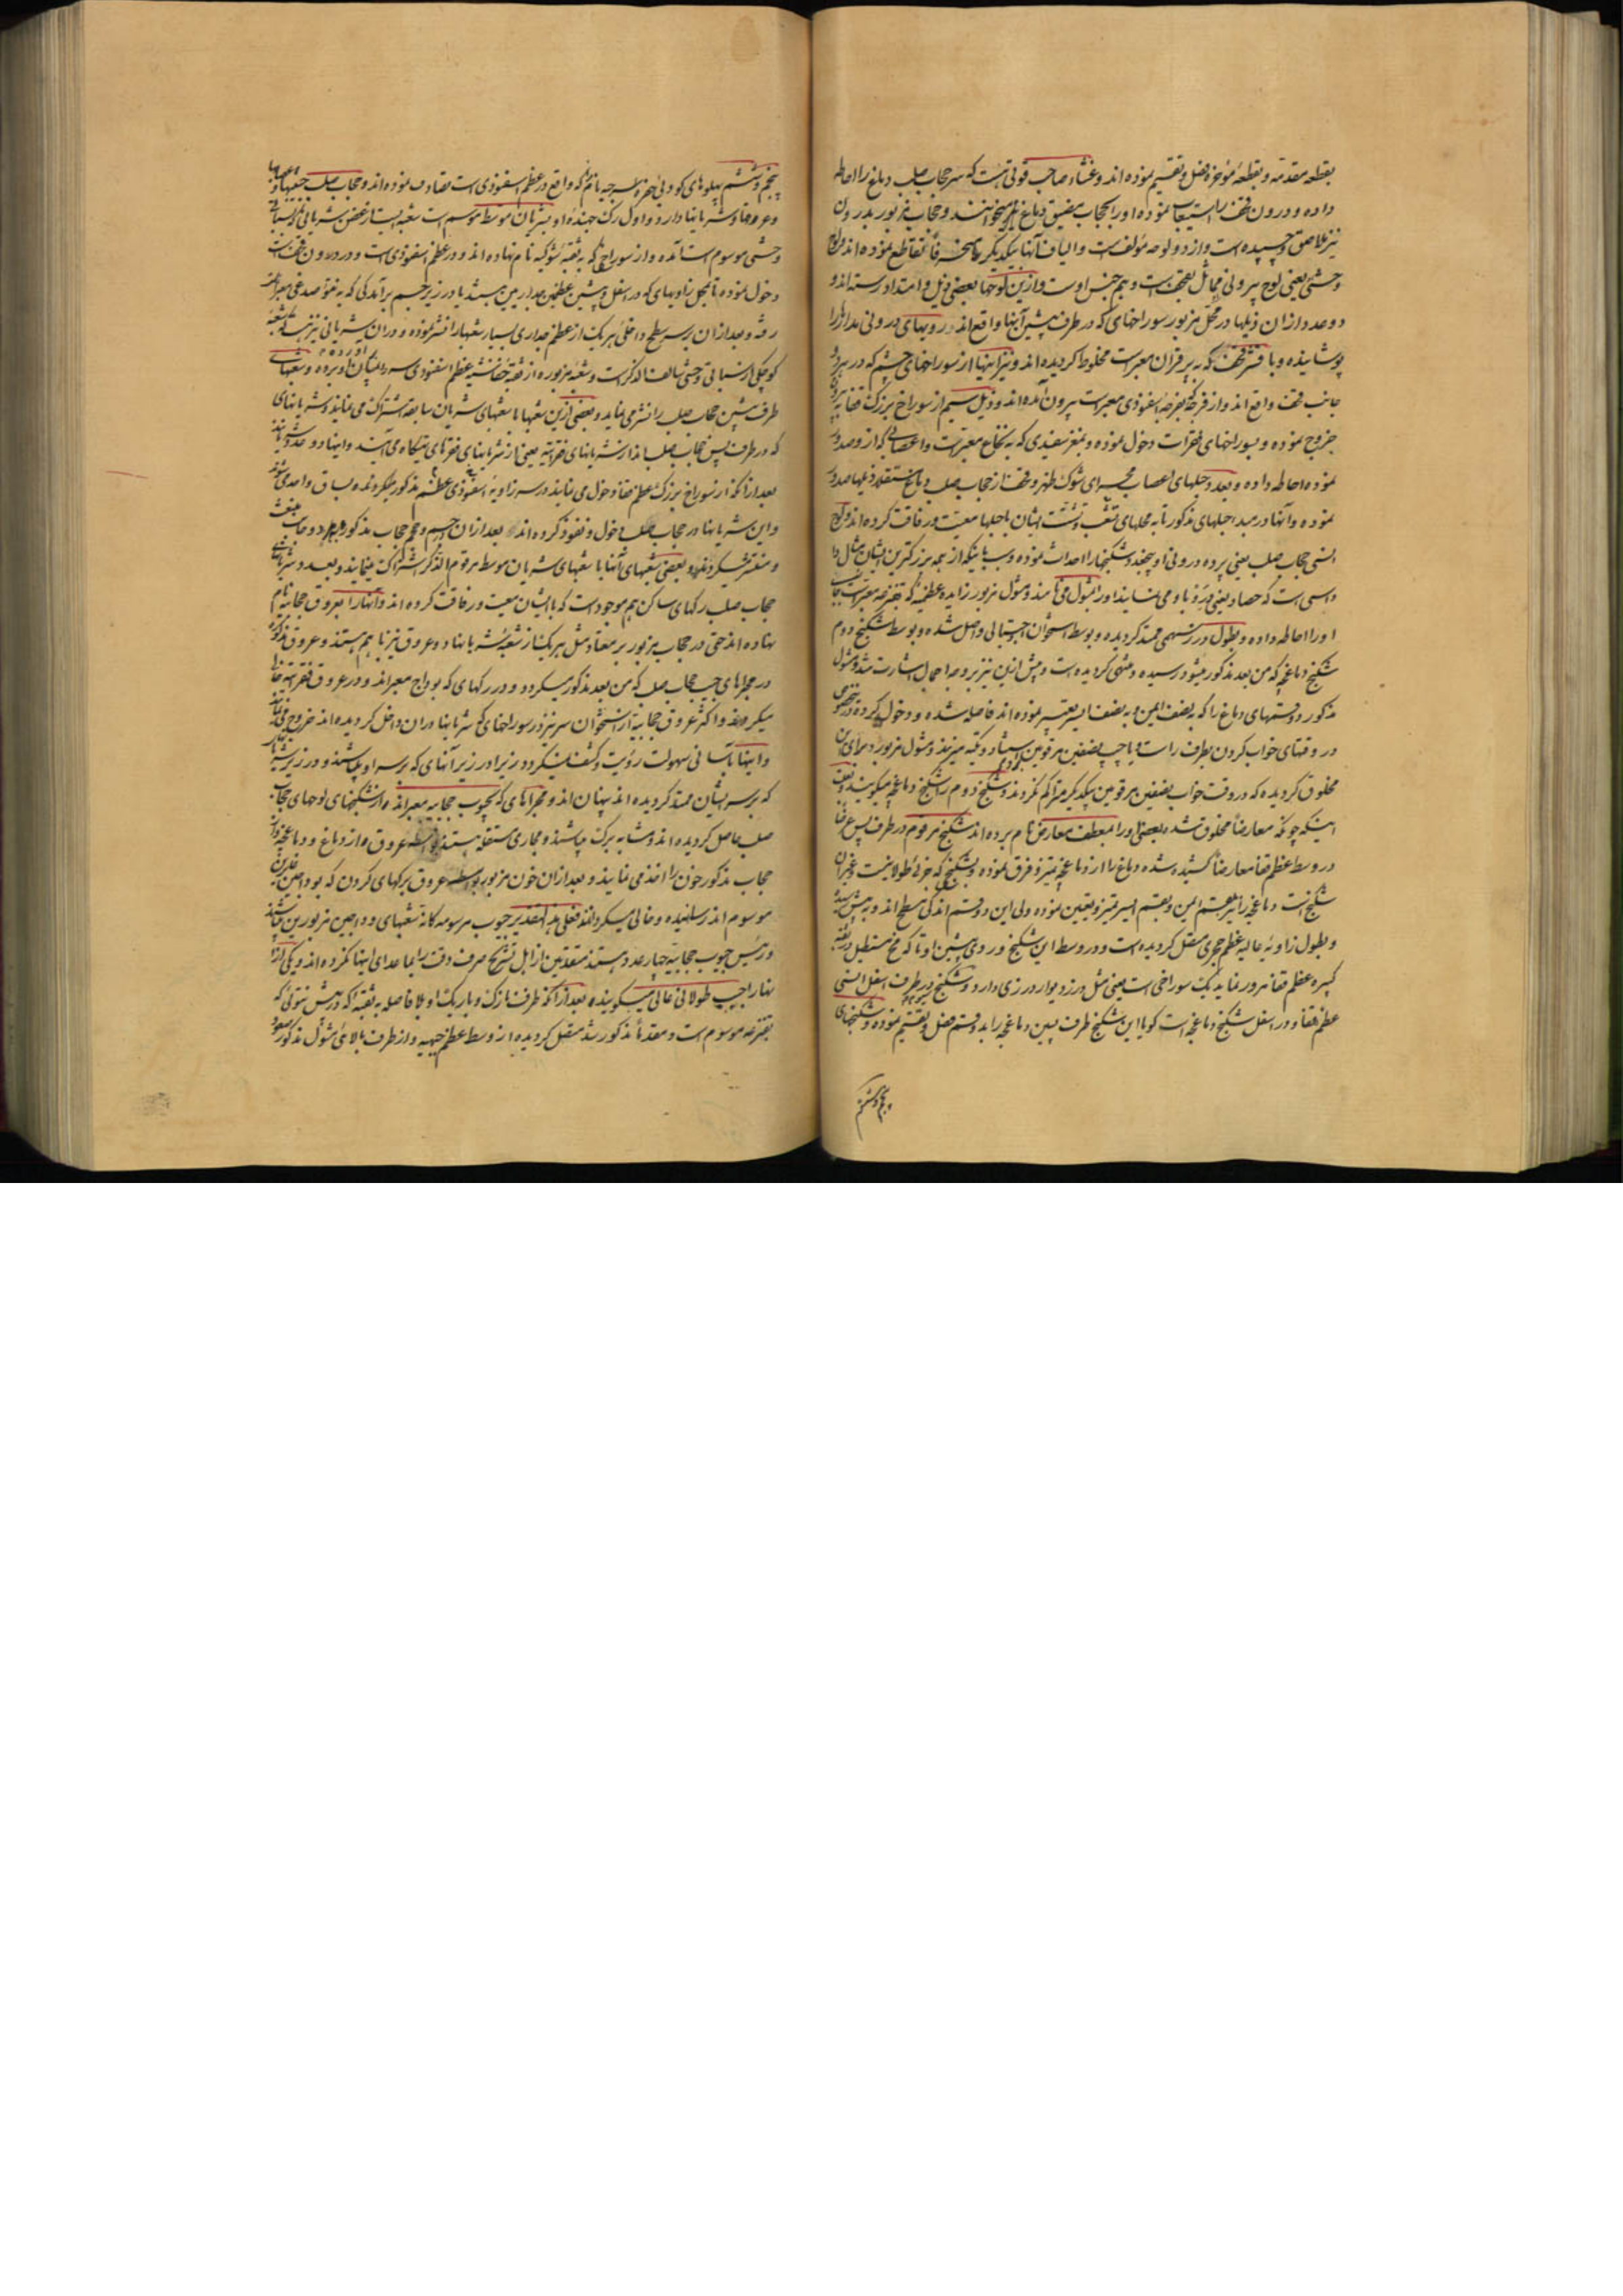 بقطعه مقدمه و بقطعه مؤخره فصل و تقسیم نموده اند و غشاء صاحب قوتی هست که سر حجاب صلب دماغ را احاطه
داده و درون قحف را استیعاب نموده او را بحجاب صفیق دماغ نیز میخوانند و حجاب مزبور بدرون
نیز ملاصق و چسپیده است و از دو لوحه مؤلف است و الیاف آنها بیکدیگر تقاطع نموده اند و لوح
وحشی یعنی لوح بیرونی مماثل قحف است و هم جنس اوست و ازین لوحها بعضی ذیل و امتداد رسته اند و
دو عدد از ان ذیلها در محل مزبور سوراخهای که در طرف پیشین آنها واقع اند در رویهای درونی مدار را
پوشانیده و با قشر قحف که به پرقران معبر است مخلوط کردیده اند و نیز اینها از سوراخهای چشم که در هر دو
جانب قحف واقع اند و از فرجه که بفرجه اسفنوذی معبر است بیرون آمده اند و ذیل سیم از سوراخ بزرک قفا به بیرون
خروج نموده و بسوراخهای فقرات دخول نموده و بمغز سفیدی که به نخاع معبر است و اعصابی که از و صدور
نموده احاطه داده و بعده حبلهای اعصاب مجرای شوک ظهر و قحف از حجاب صلب دماغ مستقلا ذیلها صدور
نموده و آنها در مبدا حبلهای مذکور تا به محلهای تشعب و تشتت ایشان با حبلها معیت و رفاقت کرده اند و لوح
انسی حجاب صلب یعنی پرده درونی او چند شکنجها را احداث نموده و سبب باینکه از همه بزرکترین ایشان مثال دا
داسی است که حصاد یعنی درو با و می نمایند او را مشول می نامند و مشول مزبور زایده عظمیه که بقنزعه معبر است
او را احاطه داده و بطول درز سهمی ممتد کردیده و بوسط استخوان جبهتالی واصل شده و بوسط شکنج دوم
شکنج دماغچه که من بعد مذکور میشود رسیده و منتهی کردیده است و پیش ازین نیز بر وجه اجمال اشارت شد و مشول
مذکور دو قسمهای دماغ را که به نصف ایمن و به نصف ایسر تعبیر نموده اند فاصل شده و دخول کرده در خصوص
در وقتهای خواب کردن بطرف راست و یا چپ نصفین مرقومین استناد و تکیه میزند و مشول مزبور برای این
مخلوق کردیده که در وقت خواب نصفین مرقومین بیکدیگر متراکم نکردند و شکنج دوم را شکنج دماغچه میکویند و بعضی
اینکه چونکه معارضا مخلوق شده بعضی او را بمعطف معارض نام برده اند شکنج مرقوم در طرف پس عرضا
در وسط عظم قفا معارضا کشیده شده دماغ را از دماغچه تمیز و فرق نموده و شکنج که جزئی طولانیست و غیر از
شکنج است دماغچه را نیز بقسم ایمن و بقسم ایسر تمیز و تعیین نموده ولی این دو قسم اندکی مسطح اند و به پیش رسیده
و بطول زاویه عالیه عظم حجری متصل کردیده است و در وسط این شکنج و روی پیشین او تا که مخ مستطیل در ثقبه
کبیره عظم قفا مرور نماید یک سوراخی است یعنی مثل درز دیوار درزی دارد و شکنج سیوم در طرف اسفل انسی
عظم قفا و در اسفل شکنج دماغچه است کویا این شکنج طرف پسین دماغچه را بدو قسم فصل و تقسیم نموده و شکنجهای
پنجم و ششم
پنجم و ششم پهلوهای کودنی حفره السرجیه یا نام که واقع در عظم اسفنوذی است تصادف نموده اند و حجاب صلب جیبها و
و عروقها و شریانها دارد و اول رک جهنده او بشریان متوسط موسوم است شعبه ایست از غصن شریانی که بسباتی
وحشی موسوم است آمده و از سوراخ که به ثقبه شوکیه نام نهاده اند و در عظم اسفنوذی است و در درون قحف
دخول نموده تا بمحل زاویهای که در اسفل و پیشین عظمین جدارین میباشد یا در زیر جسم برآمدکی که به نتوء صدغی معبر است
رفته و بعد از ان بر سطح داخلی هر یک از عظم جداری بسیار شعبها را نشر نموده و در ان شریانی نیز هست که شعبه
کوچکی از سباتی وحشی سالف الذکر است و شعبه مزبوره از ثقبه خانشیه عظم اسفنوذی سر و لسان آورده برده و شعبهای
طرف پیشین حجاب صلب را نشر می نماید و بعضی ازین شعبها با شعبهای شریان سابقه اشتراک می نمایند و شریانهای
که در طرف پس حجاب صلب اند از شریانهای فقراتیه یعنی از شریانهای فقرهای تیکاه می آیند و اینها دو عدد میباشند
بعد از آنکه از سوراخ بزرک عظم قفا دخول می نمایند در سر زاویه اسفنوذی عظم مذکور میکردند و بساق واحدی میشوند
و این شریانها در حجاب صلب دخول و نفوذ کرده اند بعد از ان جسم و حجم حجاب مذکور را بهر دو جانب
و منتشر میکردند و بعضی شعبهای آنها با شعبهای شریان متوسط مرقوم الذکر اشتراک مینمایند و بعده در شریانهای
حجاب صلب رکهای ساکن هم موجود است که با ایشان معیت و رفاقت کرده اند و آنها را بعروق حجابیه نام
نهاده اند حتی در حجاب مزبور بر معتاد مثل هر یک از شعبه شریانها دو عروق نیز با هم هستند و عروق مذکور
در مجراهای جیب حجاب صلب که من بعد مذکور میکردد و در رکهای که بوداج معبر اند و در عروق فقراتیه خالی
میکردند و اکثر عروق حجابیه از استخوان سر نیز در سوراخهای که شریانها در ان داخل کردیده اند خروج می نمایند
و اینها باسانی سهولت رؤیت و کشف نمیکردد زیرا در زیر آنهای که بر سر او میباشند و در زیر شریانها
که بر سر ایشان ممتد کردیده اند پنهان اند و مجراهای که بجیوب حجابیه معبر اند از شکنجهای لوحهای حجاب
صلب حاصل کردیده اند و مشابه برک میباشند و مجاری مستقله هستند بواسطه عروق از دماغ و دماغچه و از
حجاب مذکور خون را اخذ می نمایند و بعد از ان خون مزبور بواسطه عروق برکهای کردن که بوداجین غایرین
موسوم اند رسانیده و خالی میکردانند فعلی هذا التقدیر جیوب مرسومه کانه شعبهای وداجین مزبورین میباشند
و رئیس جیوب حجابیه چهار عدد هستند متقدمین از اهل تشریح صرف دقت را بما عدای اینها نکرده اند و یکی از
آنها را جیب طولانی عالی میکویند بعد از آنکه طرف نازک و باریک او بلا فاصله به ثقبه که در پیش نتوئی که
بقنزعه موسوم است و مقدما مذکور شد متصل کردیده از وسط عظم جبهه و از طرف بالای مشول مذکور صعود